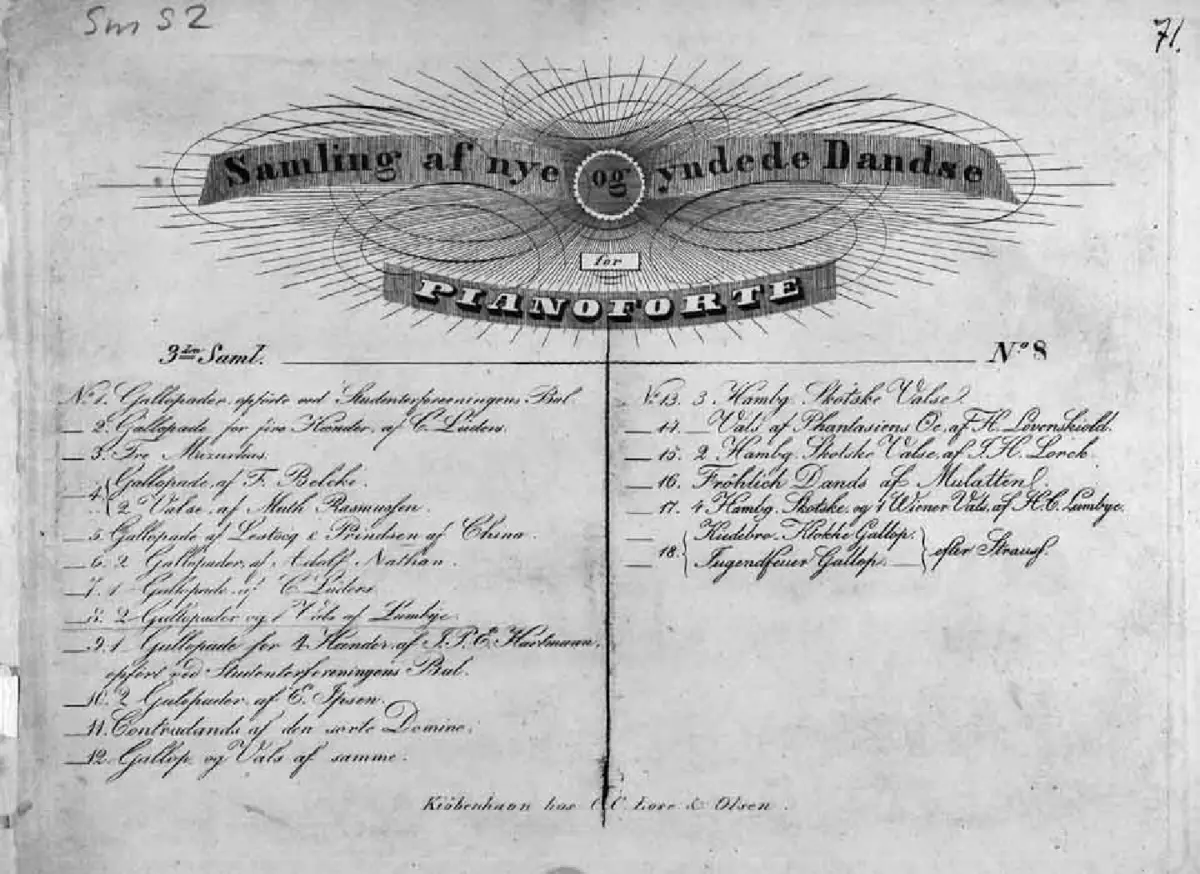 Sm S2
71.
Samling af nye og yndede Dandse
for
PIANOFORTE
3die Saml.
No 8
No 1. Gallopader, opförte ved Studenterforeningens Bal
2. Gallopade for fire Hænder, af C. Lüders.
3. Tre Mazurkas.
4. Gallopade, af F. Belcke.
2 Valse, af Muth Rasmussen.
5. Gallopade af Lestocq & Prindsen af China.
6. 2 Gallopader, af Adolf Nathan.
7. 1 Gallopade, af C. Lüders.
8. 2 Gallopader og 1 Vals af Lumbye.
9. 1 Gallopade for 4 Hænder, af J. P. E. Hartmann,
opfört ved Studenterforeningens Bal.
10. 2 Galopader, af E. Ipsen.
11. Contradands af den sorte Domino.
12. Gallop og Vals af samme.
No 13. 3 Hambg. Skotske Valse
14. Vals af Phantasiens Oe, af H. Lövenskiold.
15. 2 Hambg. Skotske Valse, af J. H. Lorck.
16. Fröhlich Dands af Mulatten
17. 4 Hambg. Skotske, og 1 Wiener Vals, af H. C. Lumbye.
Kiedebro-Klokke Gallop.
18. efter Strauss.
Jugendfeuer Gallop.
Kiöbenhavn hos C. C. Lose & Olsen.